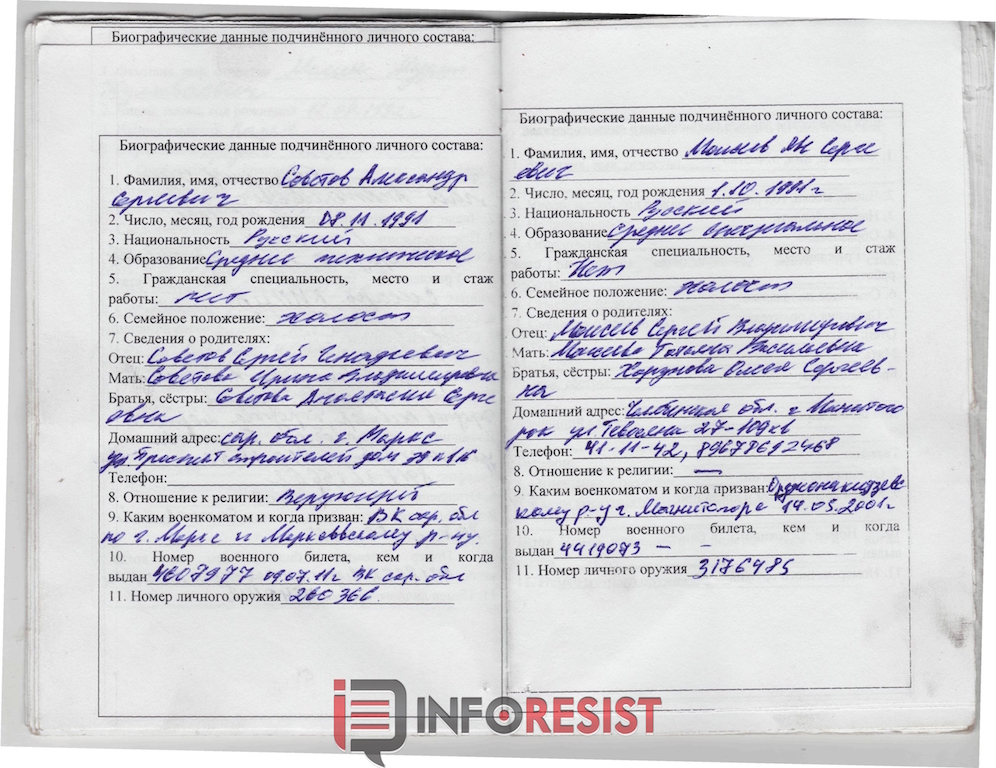 Биографические данные подчинённого личного состава:
Биографические данные подчинённого личного состава:
1. Фамилия, имя, отчество Советов Александр
Сергеевич
2. Число, месяц, год рождения 08.11.1991
3. Национальность Русский
4. Образование Среднее техническое
5. Гражданская специальность, место и стаж
работы: нет
6. Семейное положение: холост
7. Сведения о родителях:
Отец: Советов Сергей Генадьевич
Мать: Советова Ирина Владимировна
Братья, сёстры: Советова Анастасия Серге
овна
Домашний адрес: сар. обл. г. Маркс
ул. Проспект строителей дом
Телефон:
8. Отношение к религии: Верующий
9. Каким военкоматом и когда призван: ВК сар. обл
по г. Маркс и Марксовскому р-ну.
10. Номер военного билета, кем и когда
выдан 4607977 09.07.11г ВК сар. обл
11. Номер личного оружия 260366
Биографические данные подчинённого личного состава:
1. Фамилия, имя, отчество Моисеев Ян Серге
евич
2. Число, месяц, год рождения 1.10.1981г
3. Национальность Русский
4. Образование Среднее специальное
5. Гражданская специальность, место и стаж
работы: Нет
6. Семейное положение: холост
7. Сведения о родителях:
Отец: Моисеев Сергей Владимирович
Мать: Моисеева Татьяна Васильевна
Братья, сёстры: Олеся Сергеев-
на
Домашний адрес: обл. г Магнитого
рск ул Гевосяна 27-109кв
Телефон: 41-11-42, 89678692468
8. Отношение к религии: —
9. Каким военкоматом и когда призван: Орджоникидзевс
кому р-у г. Магнитогорс 14.05.2001г
10. Номер военного билета, кем и когда
выдан 4419073 — –
11. Номер личного оружия 3176485
INFORESIST